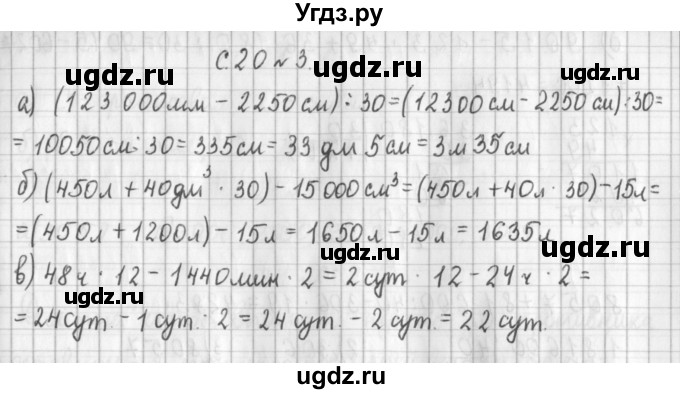 Угдз.ру
С.20 №3.
ugdz.ru ugdz.ru
а) (123 000мм − 2250см) : 30 = (12300см − 2250см) : 30 =
= 10050см : 30 = 335см = 33 дм 5см = 3м 35см
ugdz.ru ugdz.ru
б) (450л + 40дм³ · 30) − 15 000см³ = (450л + 40л · 30) − 15л =
= (450л + 1200л) − 15л = 1650л − 15л = 1635л
ugdz.ru ugdz.ru
в) 48ч · 12 − 1440мин · 2 = 2 сут · 12 − 24ч · 2 =
= 24сут. − 1 сут. · 2 = 24 сут. − 2 сут. = 22 сут.
ugdz.ru ugdz.ru
ugdz.ru